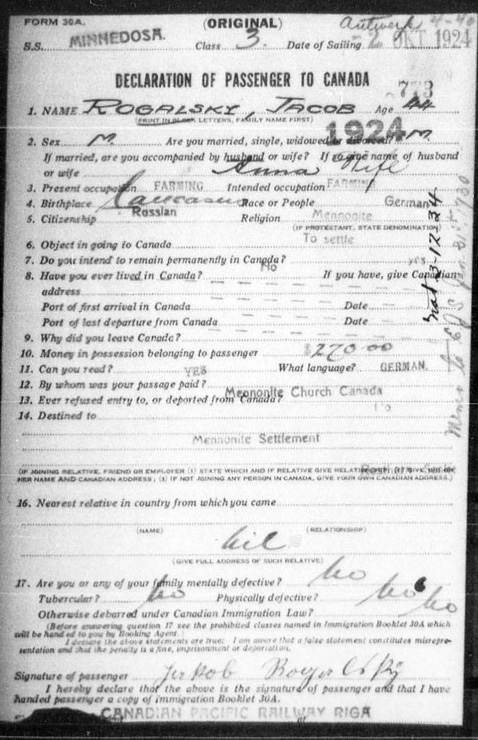 FORM 30A. (ORIGINAL) Antwerp
S.S. MINNEDOSA. Class 3. Date of Sailing 2 OKT 1924
DECLARATION OF PASSENGER TO CANADA
1. NAME ROGALSKY, JACOB Age 44
(PRINT IN BLOCK LETTERS, FAMILY NAME FIRST)
1924
2. Sex M. Are you married, single, widowed or divorced? M.
If married, are you accompanied by husband or wife? If so give name of husband
or wife Anna Wife
3. Present occupation FARMING Intended occupation FARMING
4. Birthplace Caucasus Race or People German
5. Citizenship Russian Religion Mennonite
(IF PROTESTANT, STATE DENOMINATION)
6. Object in going to Canada To settle
7. Do you intend to remain permanently in Canada? yes
8. Have you ever lived in Canada? No If you have, give Canadian
address
Port of first arrival in Canada Date
Port of last departure from Canada Date
9. Why did you leave Canada?
10. Money in possession belonging to passenger $270.00
11. Can you read? YES What language? GERMAN.
12. By whom was your passage paid? Mennonite Church Canada
13. Ever refused entry to, or deported from Canada? No
14. Destined to
Mennonite Settlement
(IF JOINING RELATIVE, FRIEND OR EMPLOYER (1) STATE WHICH AND IF RELATIVE GIVE RELATIONSHIP; (2) GIVE HIS OR
HER NAME AND CANADIAN ADDRESS; (3) IF NOT JOINING ANY PERSON IN CANADA, GIVE YOUR OWN CANADIAN ADDRESS.)
16. Nearest relative in country from which you came
(NAME) (RELATIONSHIP)
nil
(GIVE FULL ADDRESS OF SUCH RELATIVE)
17. Are you or any of your family mentally defective? no
Tubercular? no Physically defective? no
Otherwise debarred under Canadian Immigration Law? no
(Before answering question 17 see the prohibited classes named in Immigration Booklet 30A which
will be handed to you by Booking Agent.)
I declare the above statements are true: I am aware that a false statement constitutes misrepre-
sentation and that the penalty is a fine, imprisonment or deportation.
Signature of passenger Jakob Rogalsky
I hereby declare that the above is the signature of passenger and that I have
handed passenger a copy of Immigration Booklet 30A.
CANADIAN PACIFIC RAILWAY RIGA